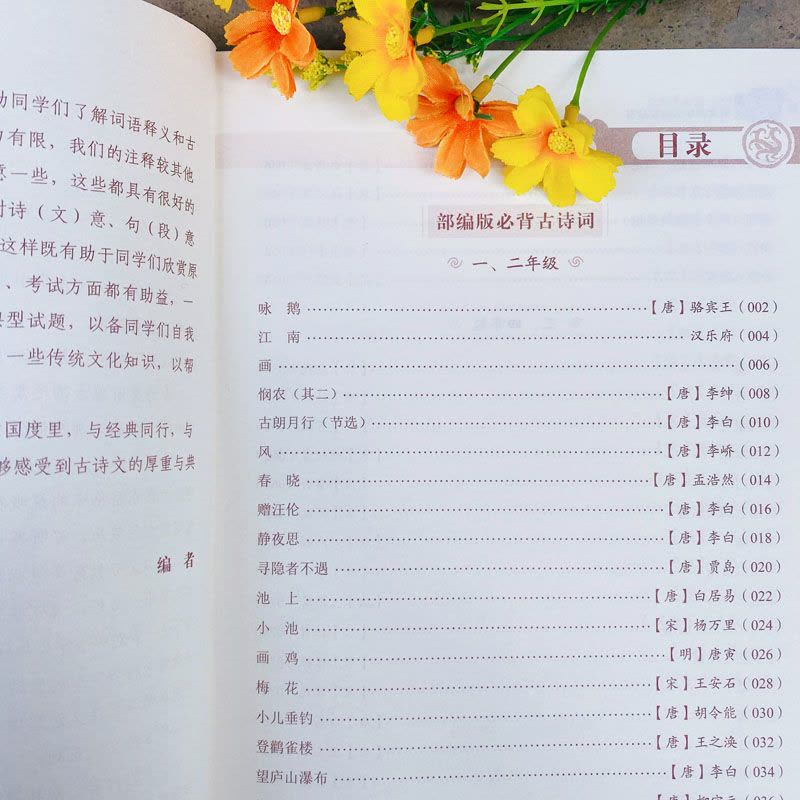 助同学们了解词语释义和古
力有限，我们的注释较其他
意一些，这些都具有很好的
对诗（文）意、句（段）意
这样既有助于同学们欣赏原
、考试方面都有助益，一
典型试题，以备同学们自我
一些传统文化知识，以帮
国度里，与经典同行，与
够感受到古诗文的厚重与典
编 者
目录
部编版必背古诗词
一、二年级
咏 鹅 【唐】骆宾王（002）
江 南 汉乐府（004）
画 （006）
悯农（其二） 【唐】李绅（008）
古朗月行（节选） 【唐】李白（010）
风 【唐】李峤（012）
春 晓 【唐】孟浩然（014）
赠汪伦 【唐】李白（016）
静夜思 【唐】李白（018）
寻隐者不遇 【唐】贾岛（020）
池 上 【唐】白居易（022）
小 池 【宋】杨万里（024）
画 鸡 【明】唐寅（026）
梅 花 【宋】王安石（028）
小儿垂钓 【唐】胡令能（030）
登鹳雀楼 【唐】王之涣（032）
望庐山瀑布 【唐】李白（034）